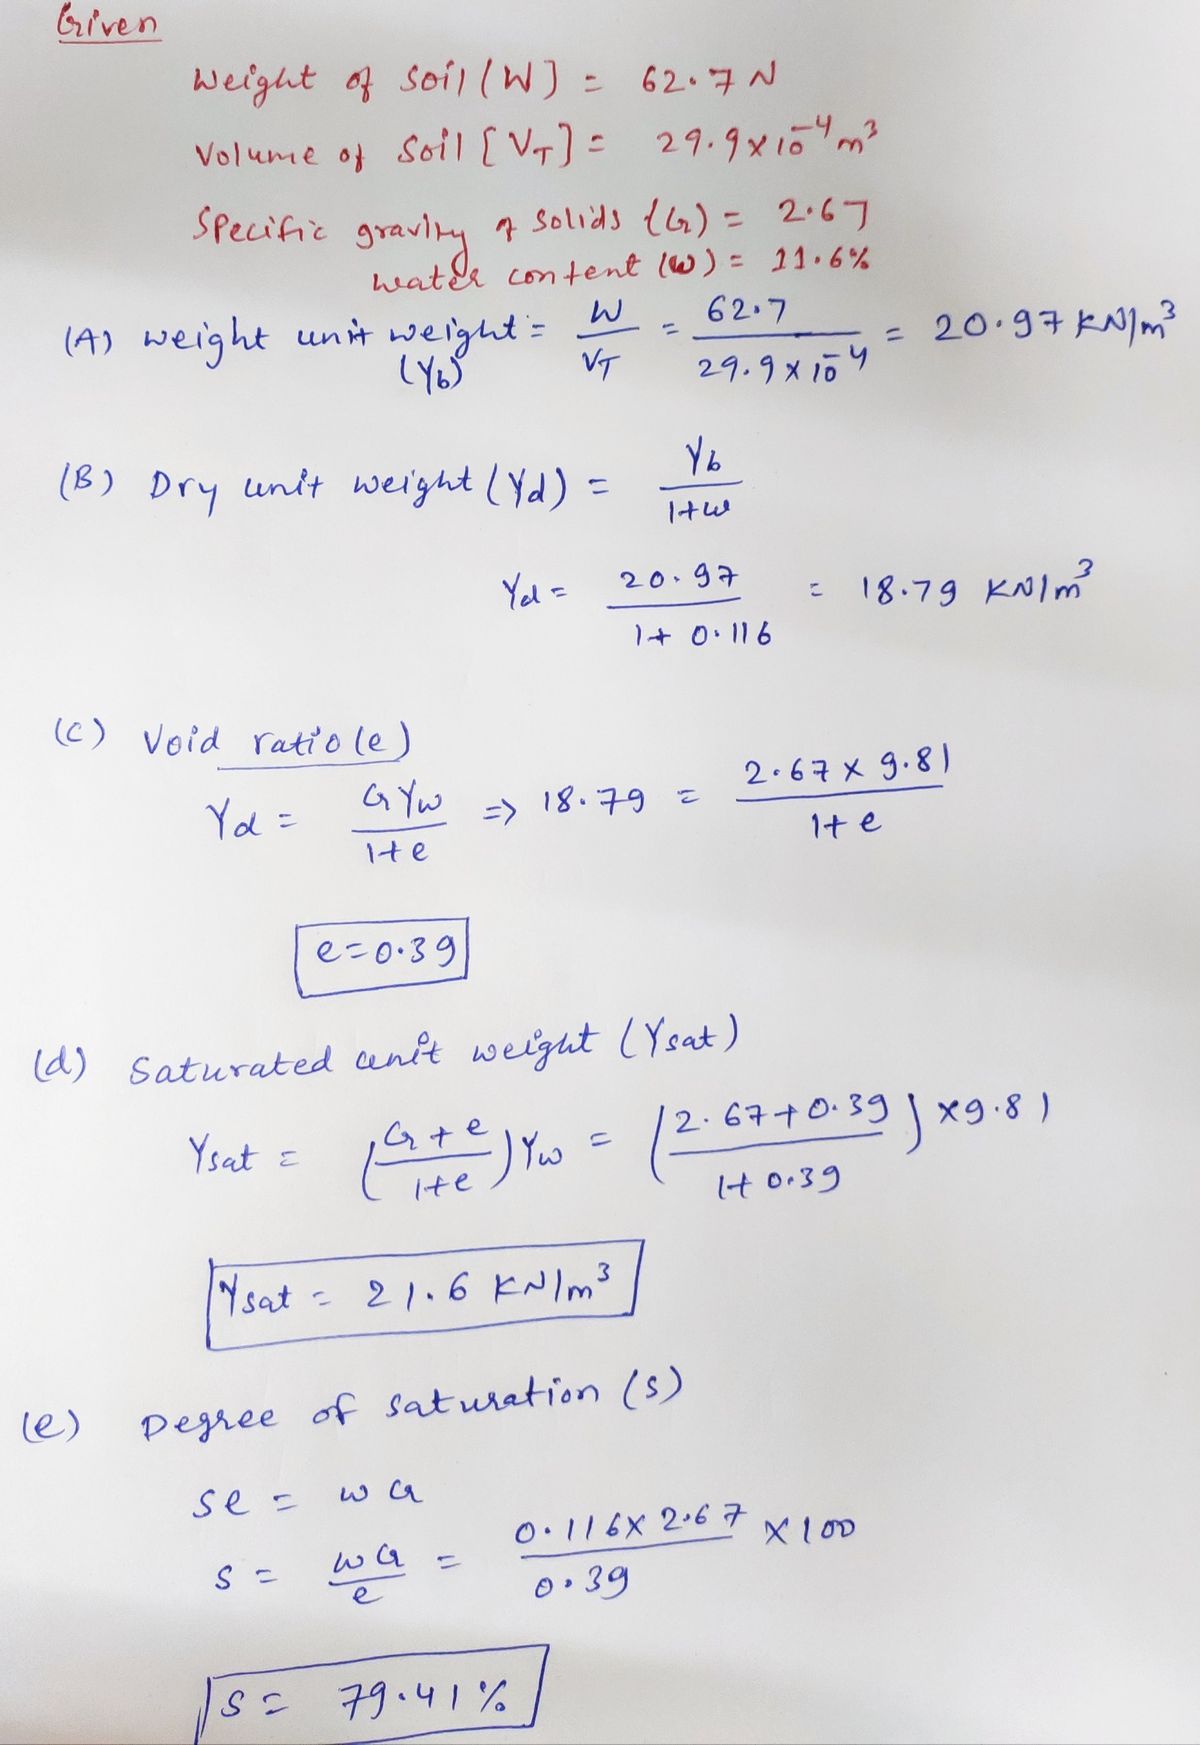 Given
Weight of soil (W] = 62.7 N
Volume of soil [VT] = 29.9 x 10^-4 m³
Specific gravity of solids {G) = 2.67
water content (w) = 11.6%
(A) weight unit weight = W/VT = 62.7/29.9 x 10^-4 = 20.97 KN/m³
(γb)
(B) Dry unit weight (γd) = γb/1+w
γd = 20.97/1+0.116 = 18.79 KN/m³
(c) Void ratio (e)
γd = Gγw/1+e => 18.79 = 2.67 x 9.81/1+e
e=0.39
(d) Saturated unit weight (γsat)
γsat = (G+e/1+e) γw = (2.67+0.39/1+0.39) x9.81
γsat = 21.6 KN/m³
(e) Degree of saturation (s)
se = wG
s = wG/e = 0.116x 2.67/0.39 x100
s = 79.41%